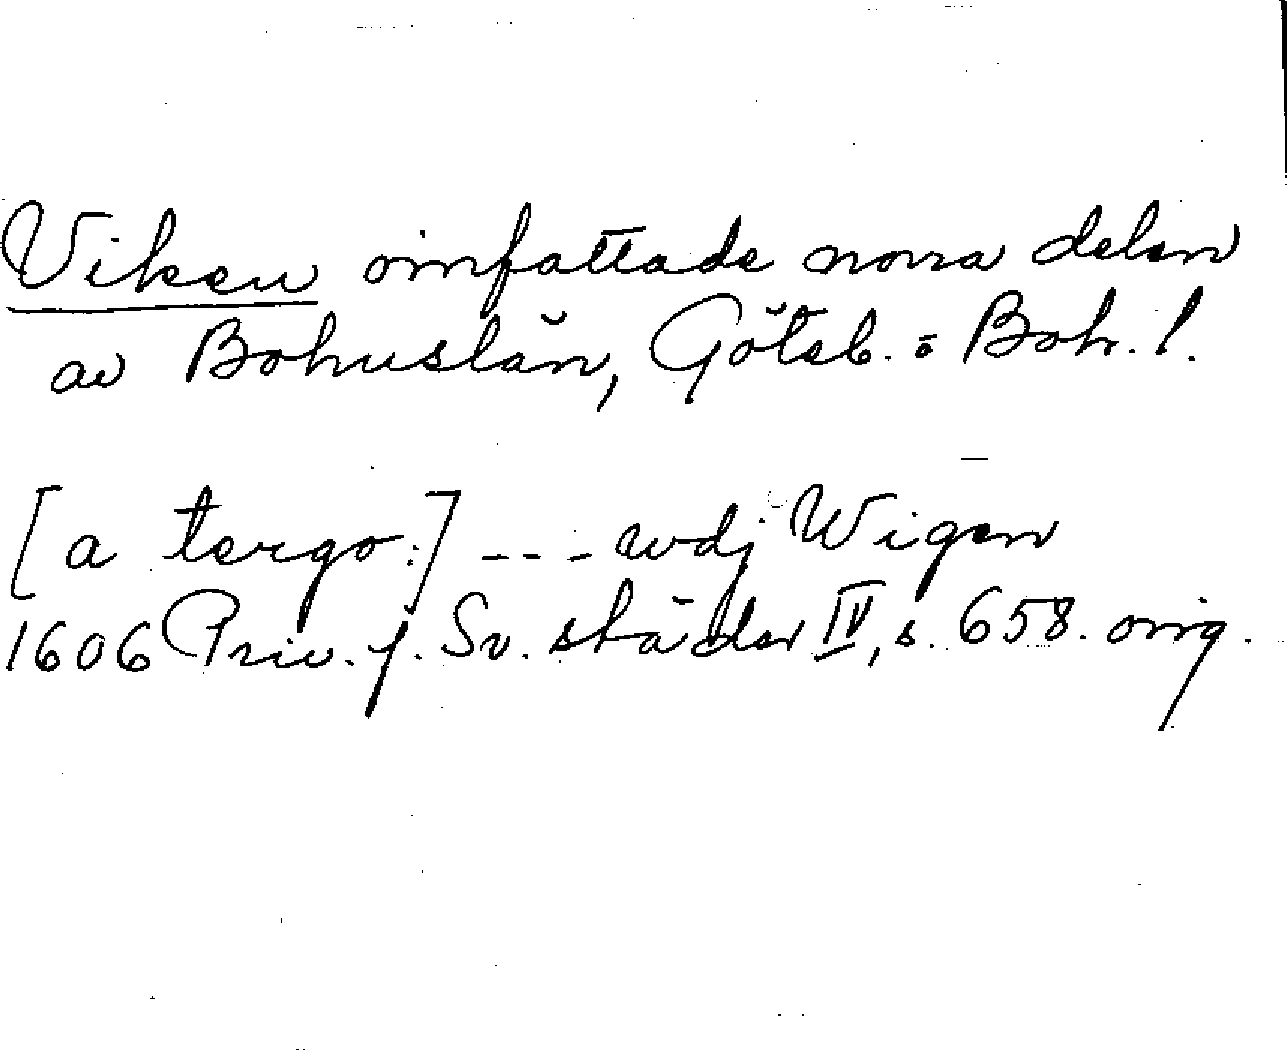 Viken omfattade norra delen
av Bohuslän, Göteb. o Boh. l.
[a tergo:] --- wdj Wigen
1606 Priv. f. Sv. städer IV, s. 658. orig.